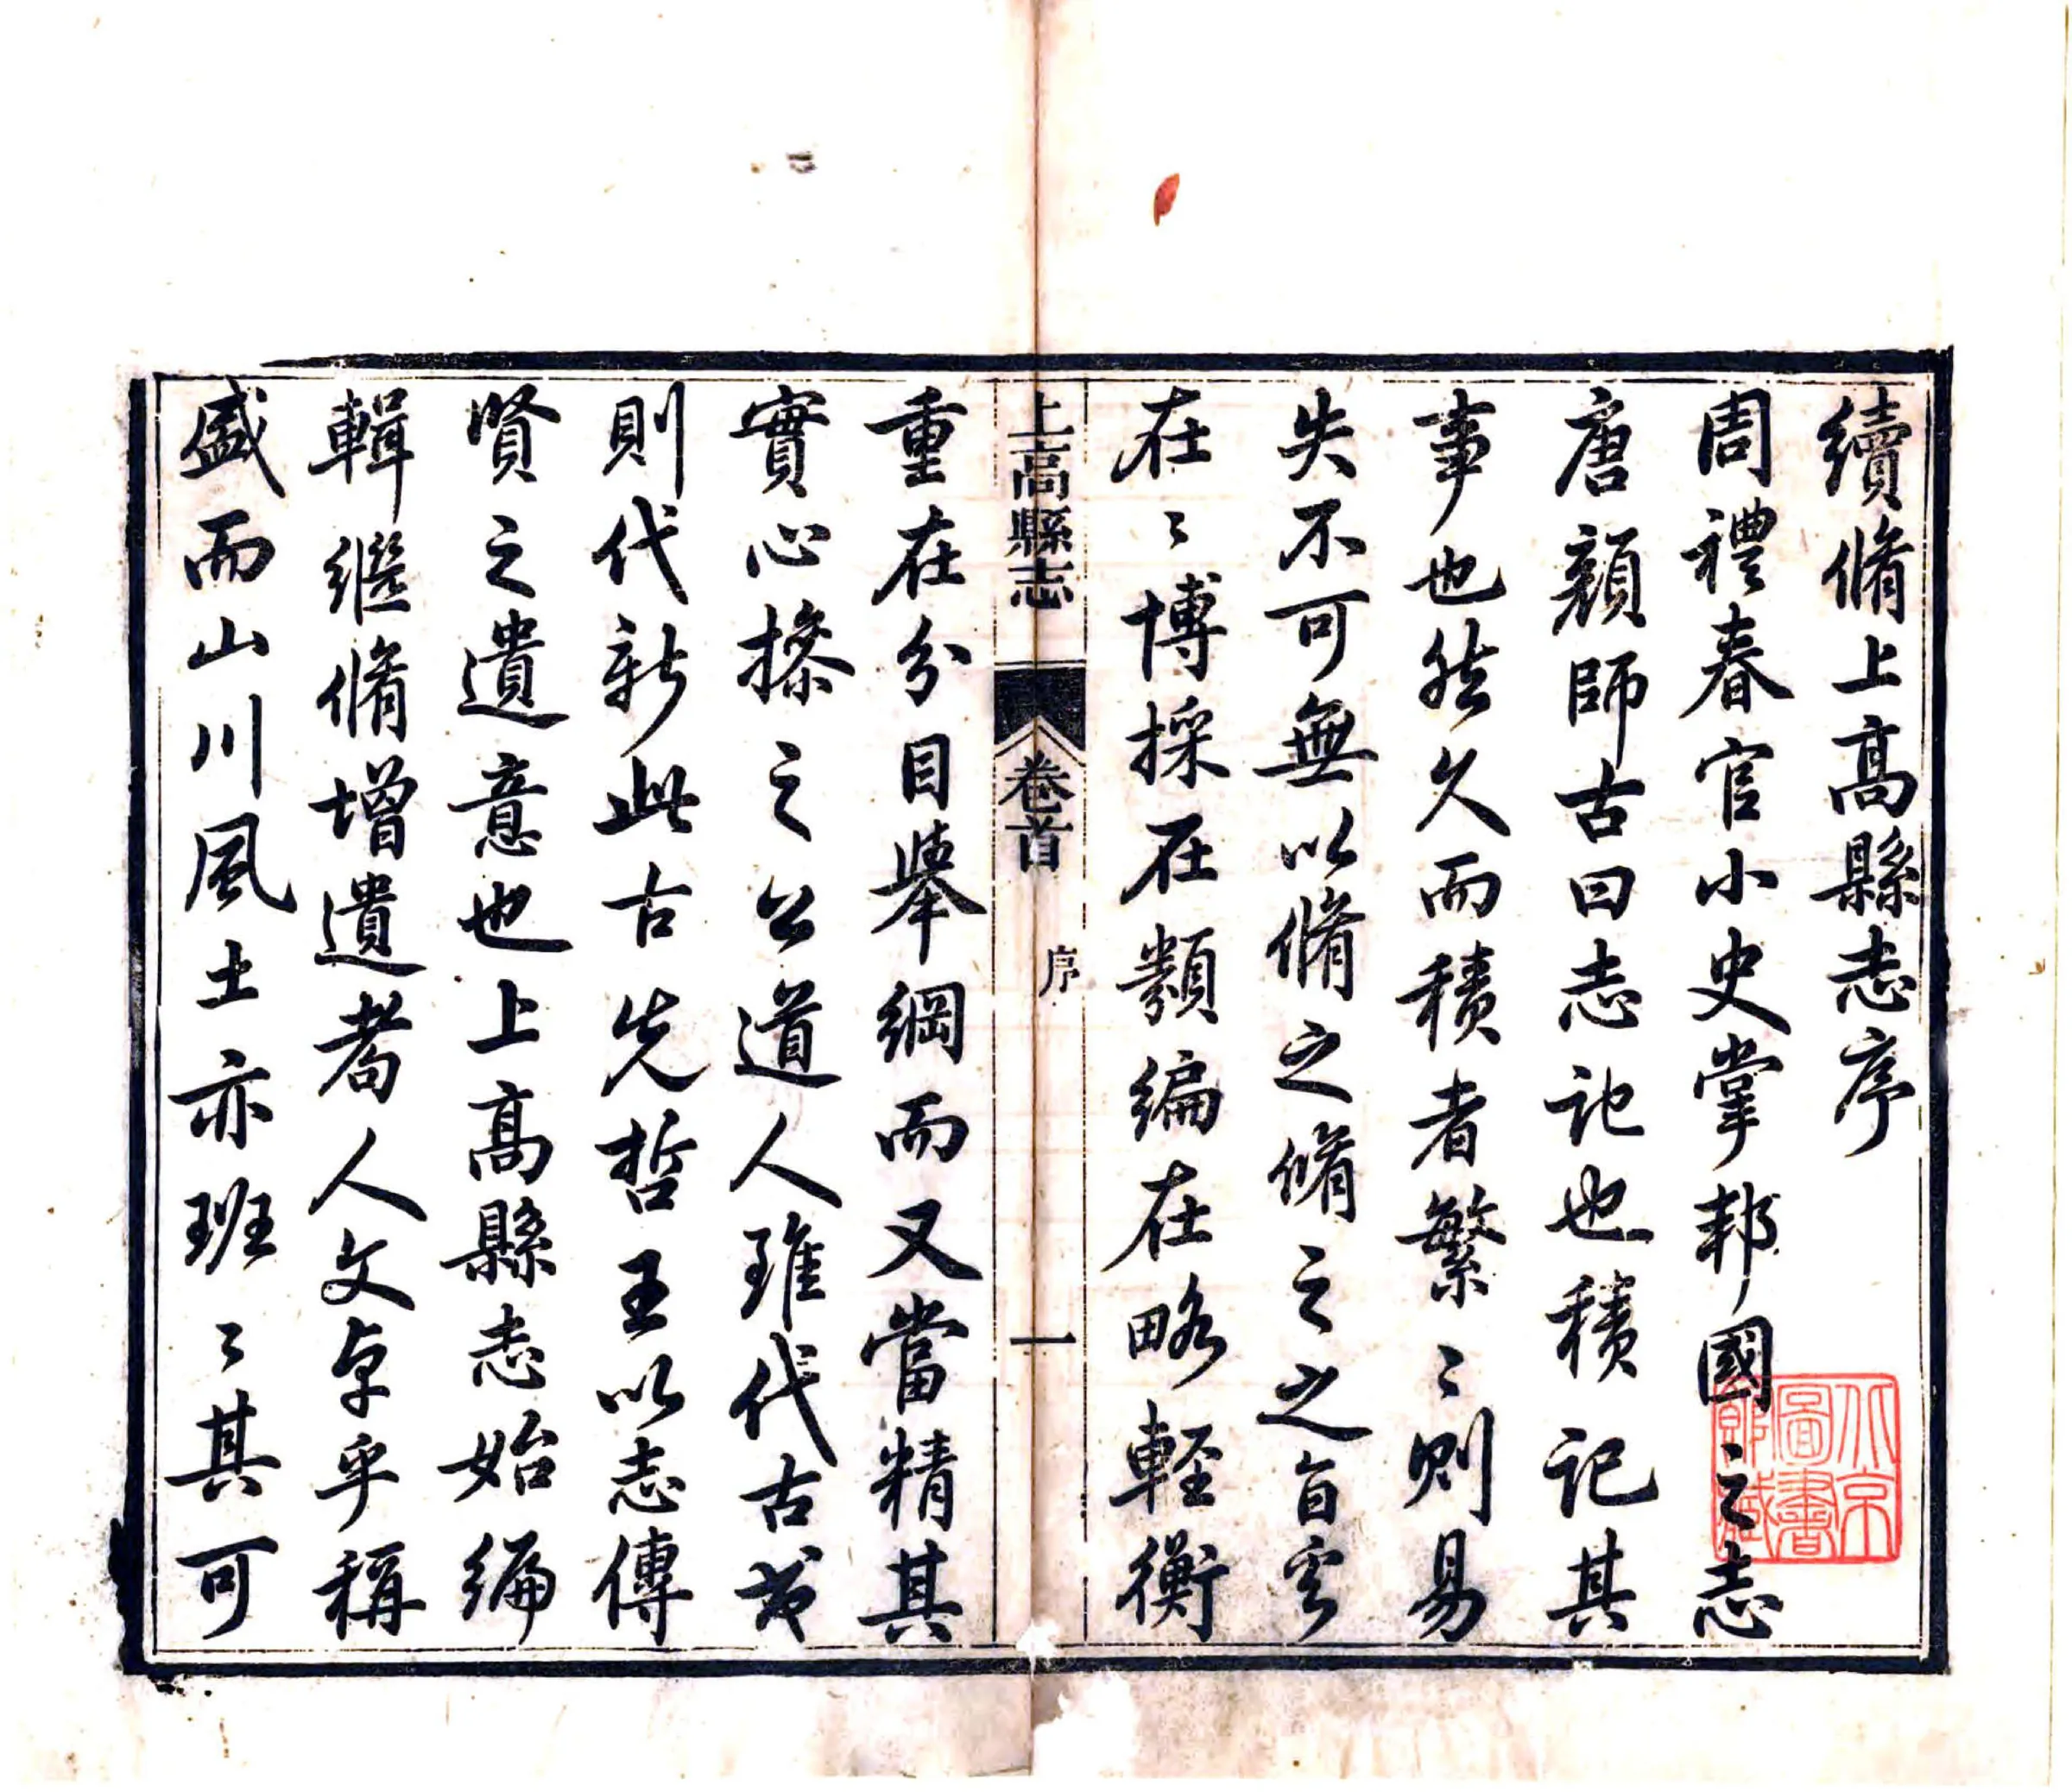 續脩上高縣志序
周禮春官小史掌邦國之志
唐顏師古曰志記也積記其
事也然久而積者繁〻則易
失不可無以脩之脩之之旨它
在〻博採在類編在略輕衡
上高縣志 卷首 序 一
重在分目舉綱而又當精其
實心操之公道人雖代古或
則代新此古先哲王以志傳
賢之遺意也上高縣志始編
輯繼脩增遺耇人文卓乎稱
盛而山川風土亦班〻其可
北京
圖書
館藏